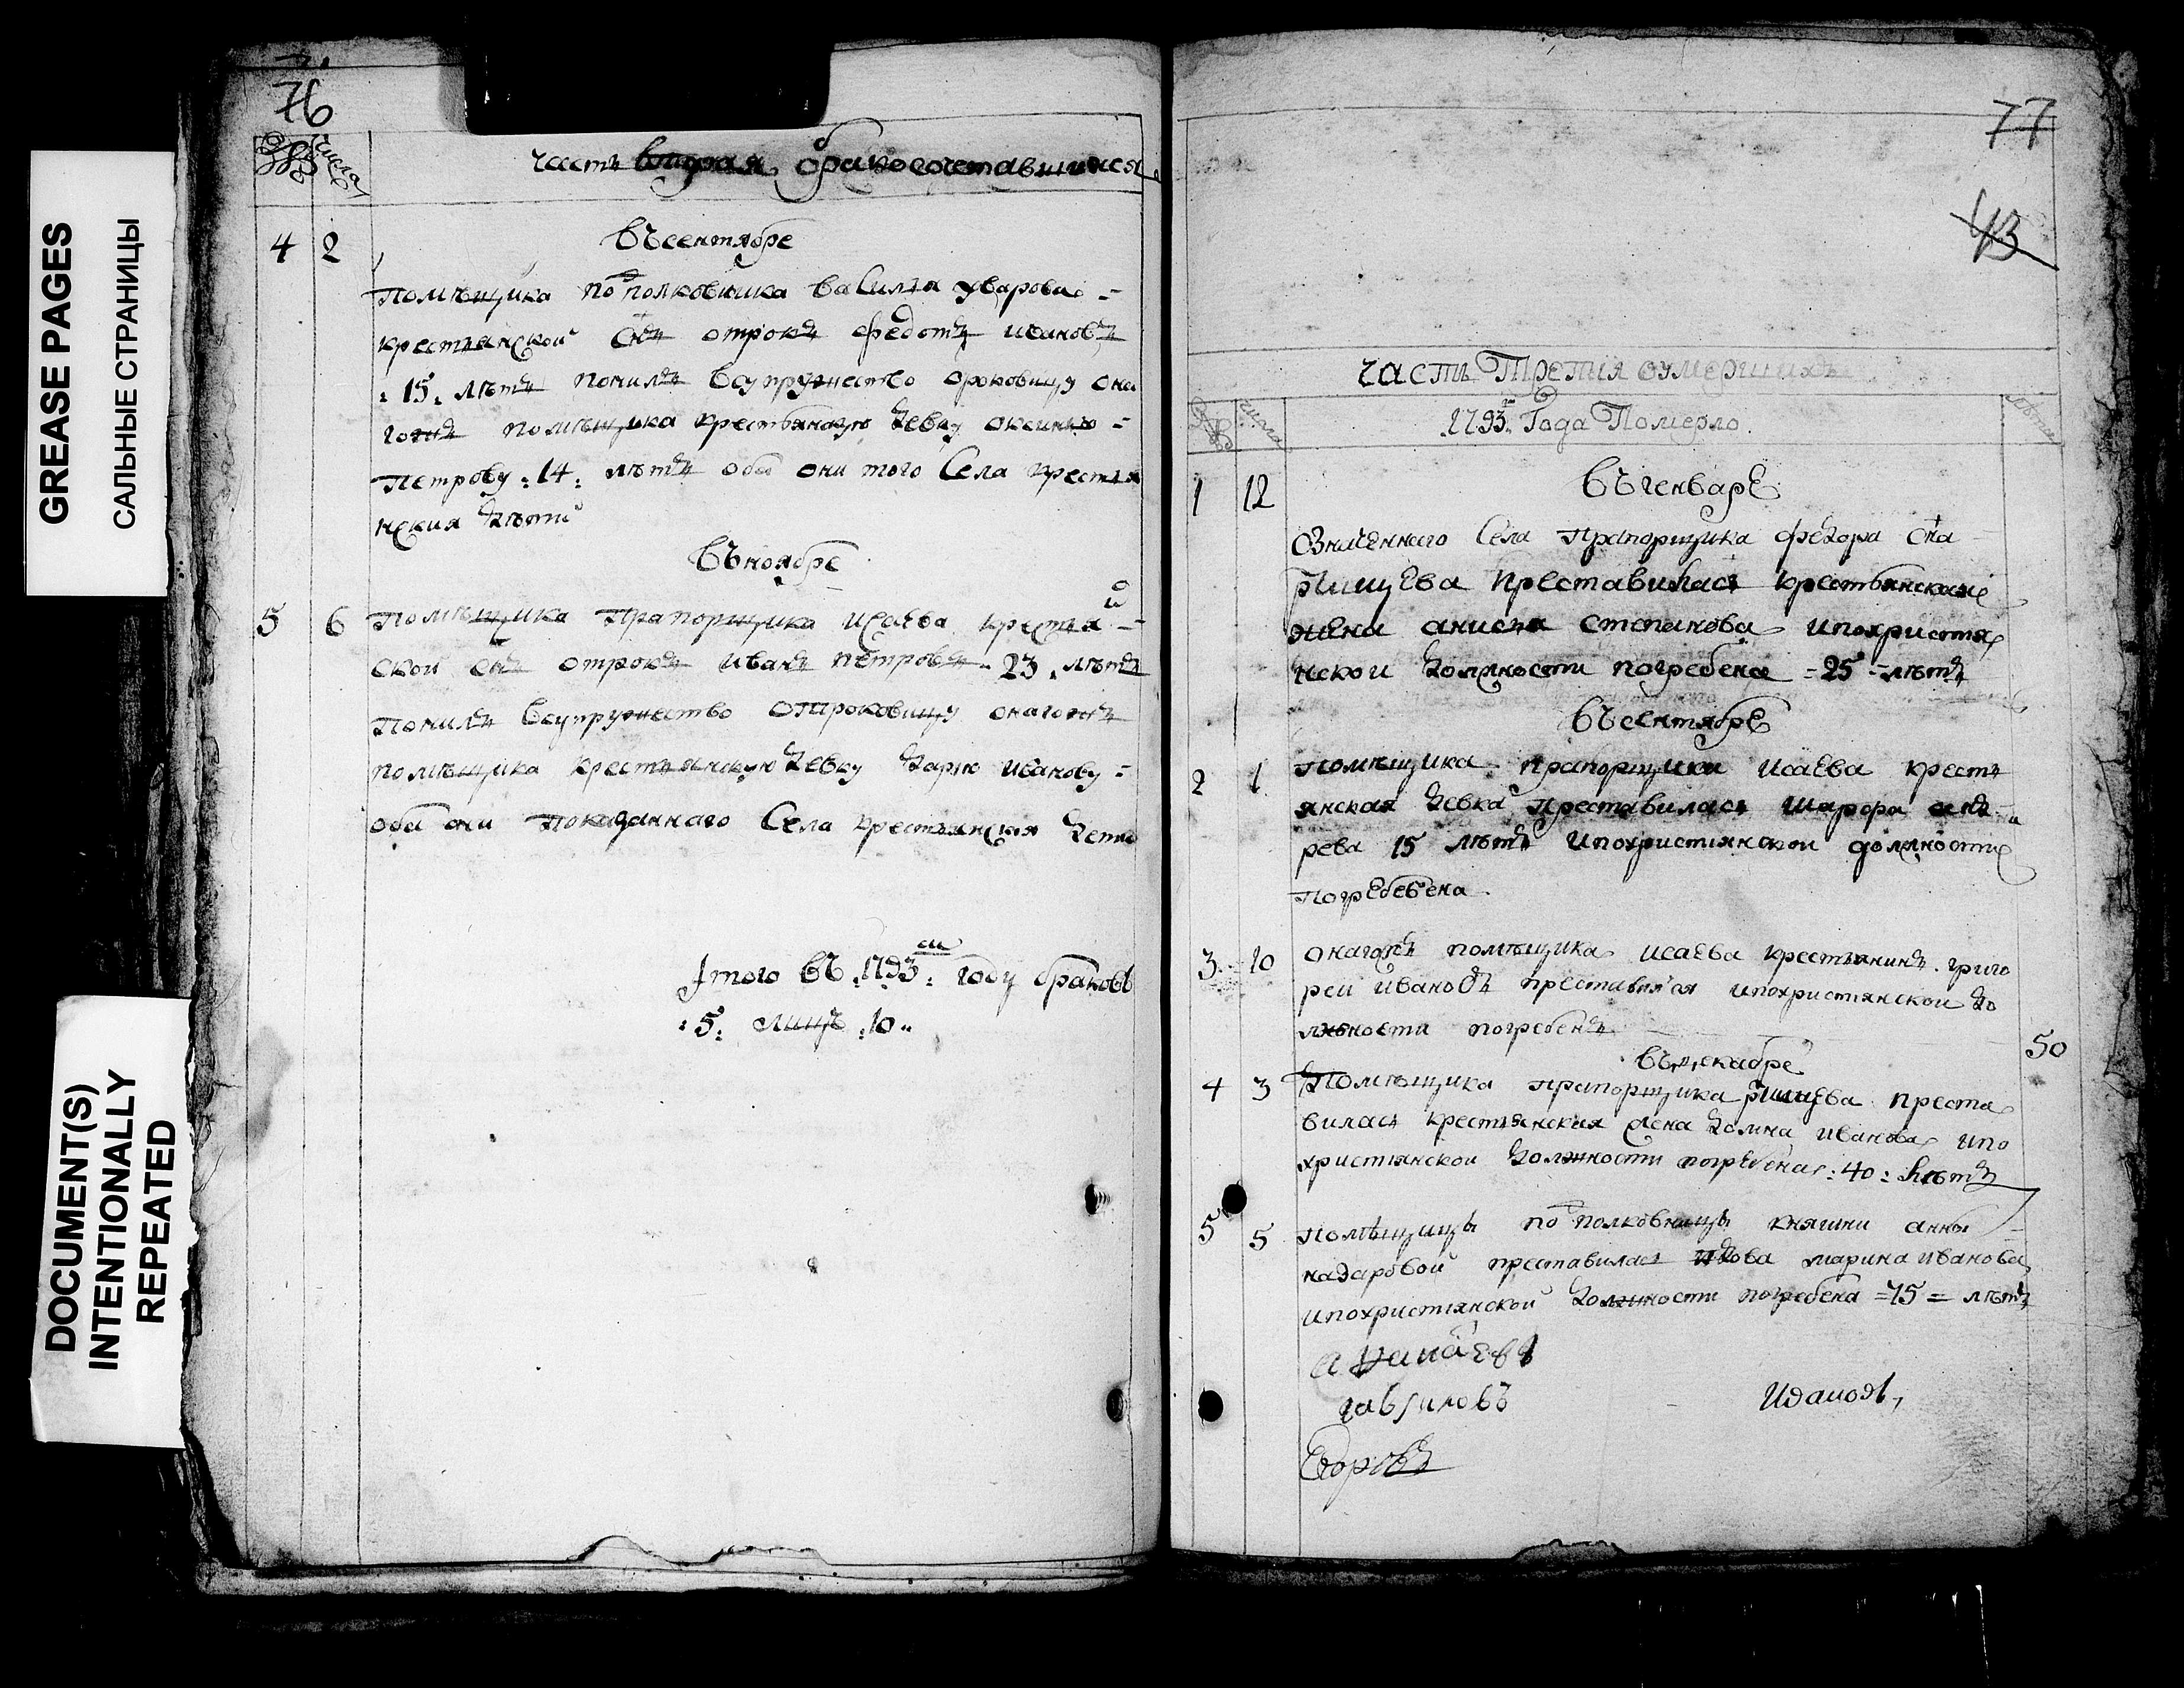 GREASE PAGES
САЛЬНЫЕ СТРАНИЦЫ
DOCUMENT(S)
INTENTIONALLY
REPEATED
76
числа
часть вторая, бракосочетавшихся
въсентябре
4 2
помѣщика подполковника василья уварова =
крестьянской снъ отрокъ федотъ ивановъ
: 15 : лѣтъ понялъ всупружество ороковицу она
гожъ помѣщика крестьянскую девку оксинью =
петрову : 14 : лѣтъ оба они того села крестья
нския дѣти
въноябре
5 6 помѣщика прапорщика исаева крестья =
ской снъ отрокъ иванъ петровъ - 23 . лѣтъ
понялъ всупружество отроковицу онагожъ
помѣщика крестьянскую девку дарью иванову =
оба они показаннаго села крестьянския дети
Итого въ 1793м : году браковъ
: 5 : лицъ : 10 :
77
43
часть третия оумершихъ
числа 1793. года померло. лѣта
1 12 въгенваре
означеннаго села прапорщика федора
ртищева преставилась крестьянская
жена анисья степанова ипохристья
нской должности погребена = 25 = лѣтъ
въсентябре
2 1 помѣщика прапорщика исаева кресть
янская девка преставилась
рева 15 лѣтъ ипохристиянской должности
погребебена
3 10 онагожъ помѣщика исаева крестьянинъ григо
реи ивановъ преставился ипохристиянской до
лжности погребенъ
50
въдекабре
4 3 помѣщика прапорщика ртищева преста
вилась крестьянская жена домна иванова ипо
християнской должности погребена : 40 : лѣтъ
5 5 помѣщицы подполковницы княгини анны =
надаровой преставилась вдова марина иванова
ипохристиянской должности погребена = 75 = лѣтъ
гавриловъ
Егоровъ